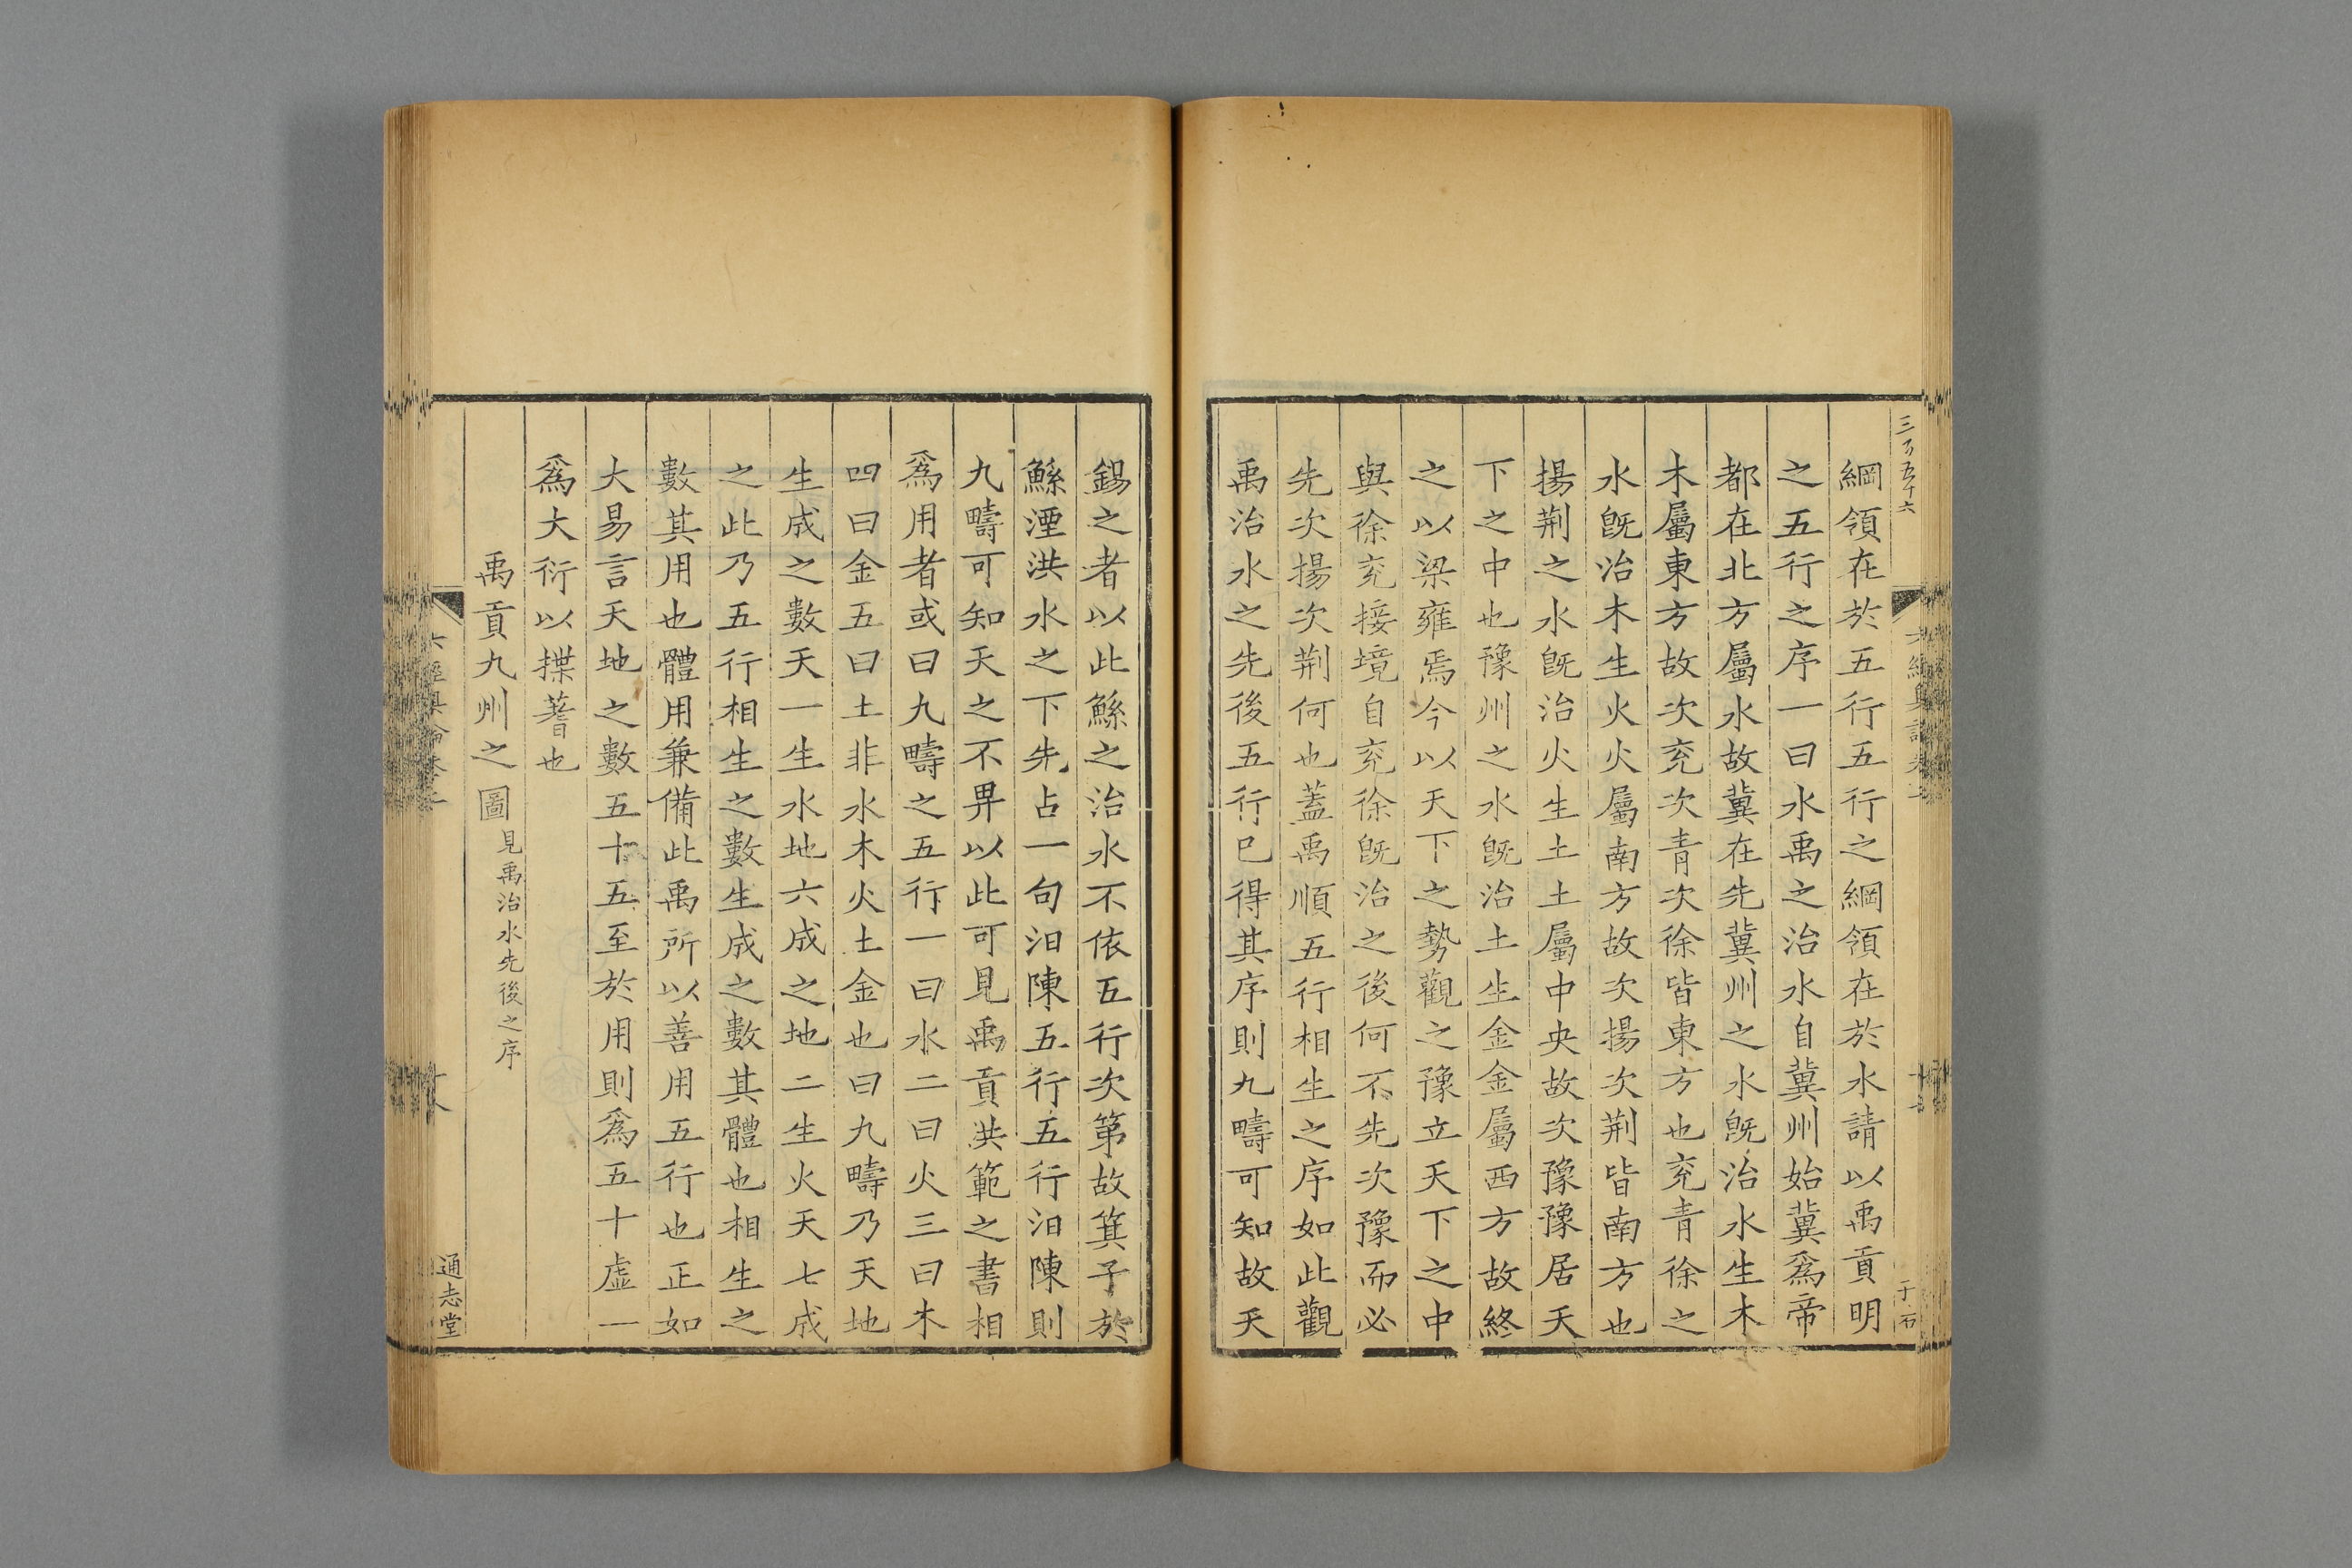 三百五十六
綱領在於五行五行之綱領在於水請以禹貢明
之五行之序一曰水禹之治水自冀州始冀爲帝
都在北方屬水故冀在先冀州之水旣治水生木
木屬東方故次兖次青次徐皆東方也兖青徐之
水旣治木生火火屬南方故次揚次荆皆南方也
揚荆之水旣治火生土土屬中央故次豫豫居天
下之中也豫州之水旣治土生金金屬西方故終
之以梁雍焉今以天下之勢觀之豫立天下之中
與徐兖接境自兖徐旣治之後何不先次豫而必
先次揚次荆何也蓋禹順五行相生之序如此觀
禹治水之先後五行已得其序則九疇可知故天
錫之者以此鯀之治水不依五行次第故箕子於
鯀湮洪水之下先占一句汨陳五行五行汨陳則
九疇可知天之不畀以此可見禹貢洪範之書相
爲用者或曰九疇之五行一曰水二曰火三曰木
四曰金五曰土非水木火土金也曰九疇乃天地
生成之數天一生水地六成之地二生火天七成
之此乃五行相生之數生成之數其體也相生之
數其用也體用兼備此禹所以善用五行也正如
大易言天地之數五十五至於用則爲五十虛一
爲大衍以揲蓍也
禹貢九州之圖見禹治水先後之序
通志堂